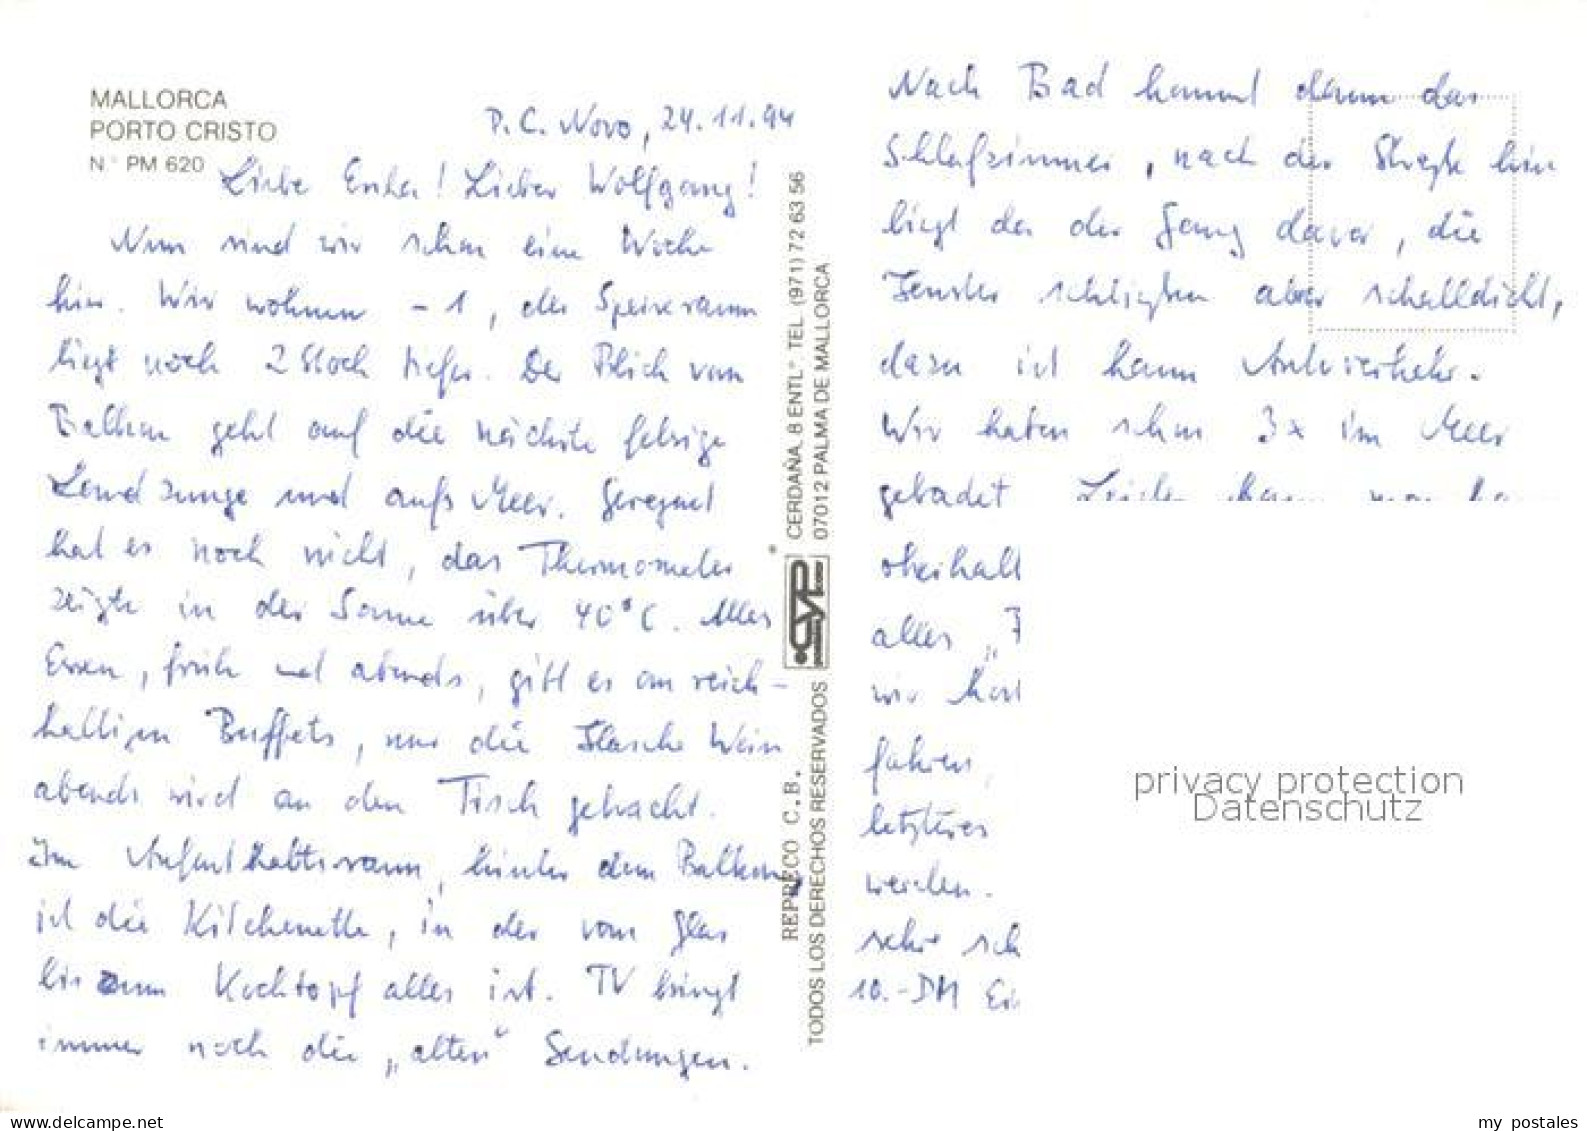 MALLORCA
PORTO CRISTO
N.° PM 620
P. C. Novo, 24.11.94
Liebe Erika! Lieber Wolfgang!
Nun sind wir schon eine Woche
hier. Wir wohnen -1, der Speiseraum
liegt noch 2 Stock tiefer. Der Blick vom
Balkon geht auf die nächste felsige
Landzunge und aufs Meer. Geregnet
hat es noch nicht, das Thermometer
zeigte in der Sonne über 40°C. Alles
Essen, früh und abends, gibt es an reich-
haltigen Buffets, nur die Flasche Wein
abends wird an den Tisch gebracht.
Im Aufenthaltsraum, hinter dem Balkon,
ist die Kitchenette, in der vom Glas
bis zum Kochtopf alles ist. TV bringt
immer noch die „alten" Sendungen.
CERDAÑA, 8 ENTL° TEL. (971) 72 63 56
07012 PALMA DE MALLORCA
CYP
REPRECO C.B.
TODOS LOS DERECHOS RESERVADOS
Nach Bad kommt dann das
Schlafzimmer, nach der Straße hin
liegt da der Gang davor, die
Fenster schließen aber schalldicht,
dazu ist kaum Autoverkehr.
Wir haben schon 3x im Meer
gebadet Leider kann man
oberhalb
alles
wir
fahren,
letzteres
werden.
sehr sch
10.-DM Ei
privacy protection
Datenschutz
www.delcampe.net
my_postales